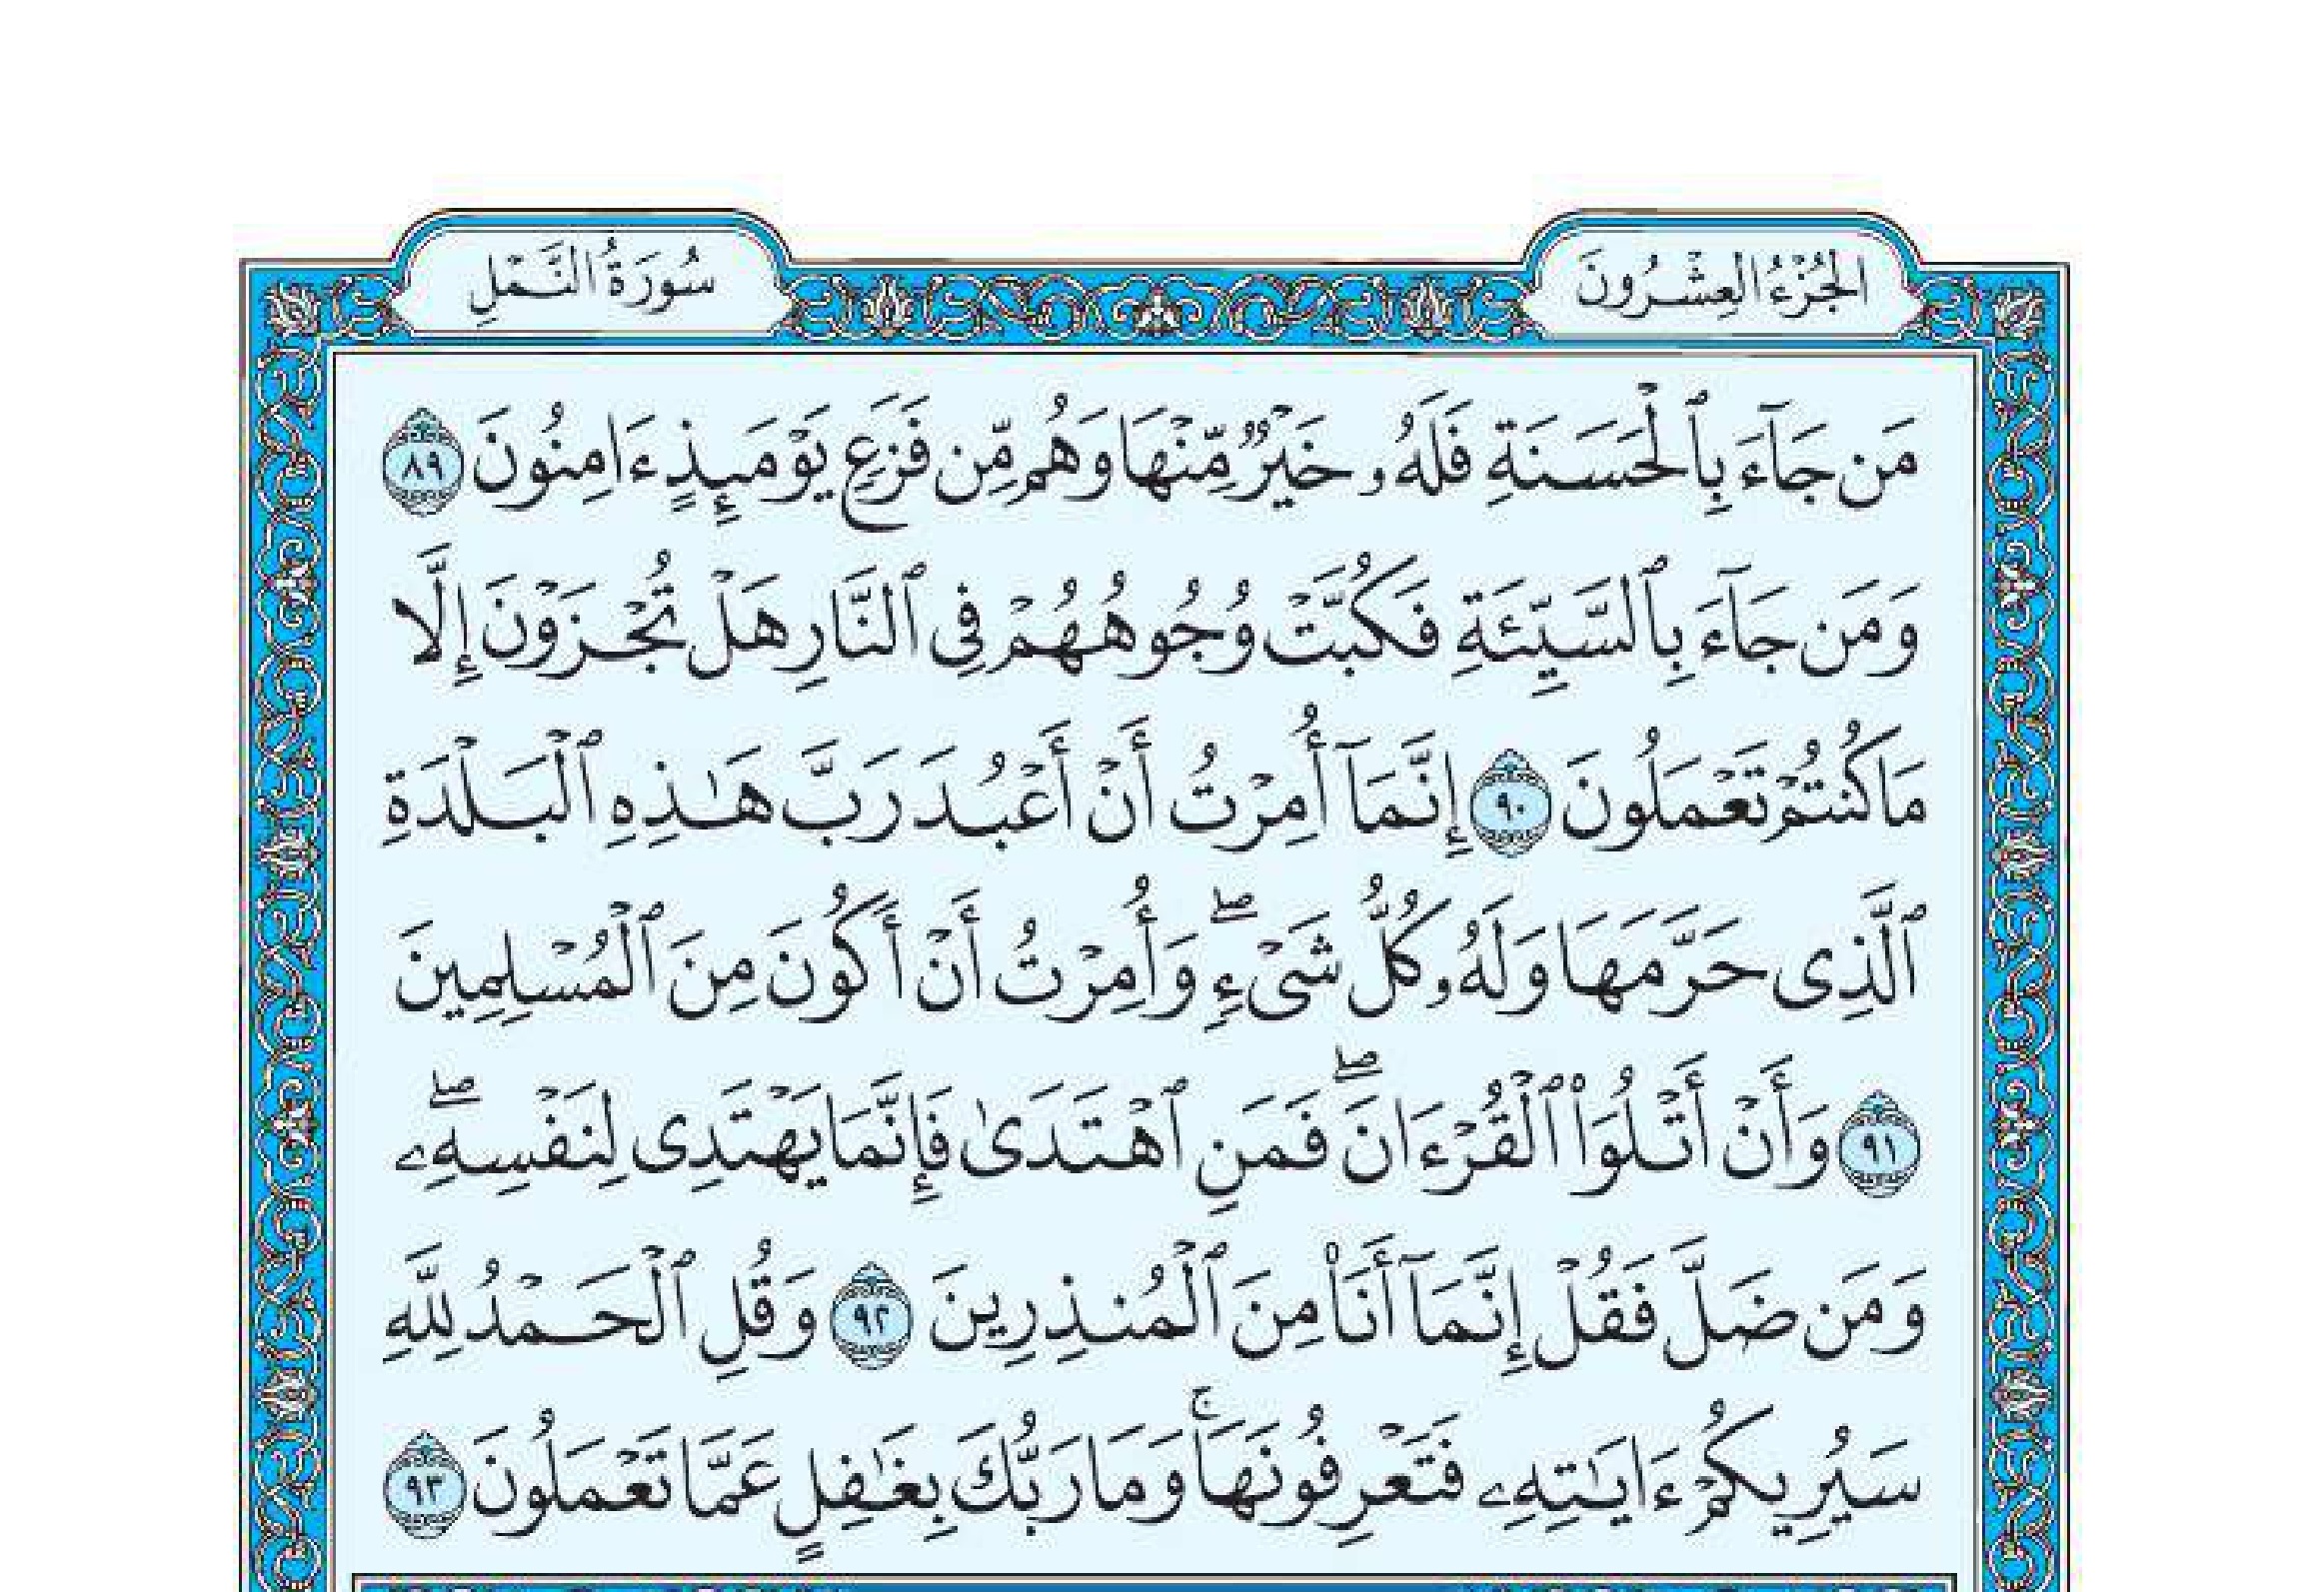 الجُزْءُ العِشْرُونَ
سُورَةُ النَّمْلِ
مَن جَآءَ بِٱلْحَسَنَةِ فَلَهُۥ خَيْرٌ مِّنْهَا وَهُم مِّن فَزَعٍ يَوْمَئِذٍ ءَامِنُونَ ٨٩
وَمَن جَآءَ بِٱلسَّيِّئَةِ فَكُبَّتْ وُجُوهُهُمْ فِى ٱلنَّارِ هَلْ تُجْزَوْنَ إِلَّا
مَا كُنتُمْ تَعْمَلُونَ ٩٠ إِنَّمَآ أُمِرْتُ أَنْ أَعْبُدَ رَبَّ هَـٰذِهِ ٱلْبَلْدَةِ
ٱلَّذِى حَرَّمَهَا وَلَهُۥ كُلُّ شَىْءٍۖ وَأُمِرْتُ أَنْ أَكُونَ مِنَ ٱلْمُسْلِمِينَ
٩١ وَأَنْ أَتْلُوَا۟ ٱلْقُرْءَانَۖ فَمَنِ ٱهْتَدَىٰ فَإِنَّمَا يَهْتَدِى لِنَفْسِهِۦۖ
وَمَن ضَلَّ فَقُلْ إِنَّمَآ أَنَا۠ مِنَ ٱلْمُنذِرِينَ ٩٢ وَقُلِ ٱلْحَمْدُ لِلَّهِ
سَيُرِيكُمْ ءَايَـٰتِهِۦ فَتَعْرِفُونَهَاۚ وَمَا رَبُّكَ بِغَـٰفِلٍ عَمَّا تَعْمَلُونَ ٩٣